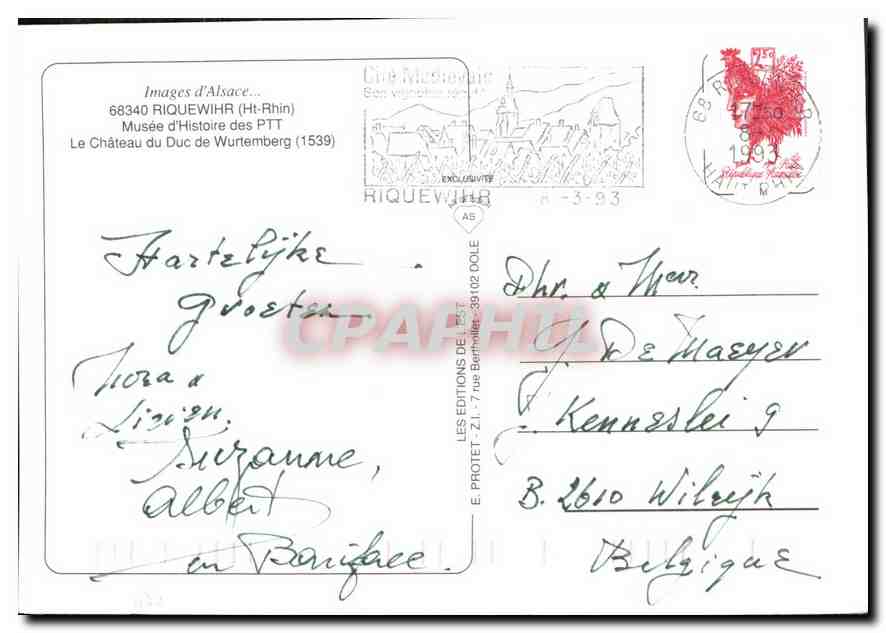 Images d'Alsace...
68340 RIQUEWIHR (Ht-Rhin)
Musée d'Histoire des PTT
Le Château du Duc de Wurtemberg (1539)
Cité Médiévale
RIQUEWIHR 8-3-93
EXCLUSIVITÉ
AS
LES EDITIONS DE L'EST
E. PROTET - Z.I. - 7 rue Berthollet - 39102 DOLE
2,50
17H
1993
HAUT RHIN
République Française
CPAPHIL
Hartelijke
groeten
Suzanne,
Albert
en Boniface.
Dhr. & Mevr.
J. De Maeyer
Kenneslei 9
B. 2610 Wilrijk
Belgique